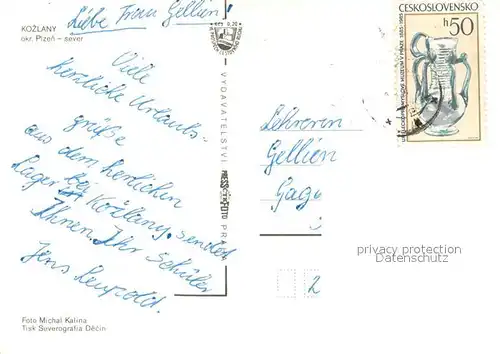 KOŽLANY
okr. Plzeň – sever
Liebe Frau Gellien!
Viele
herzliche Urlaubs-
grüße
aus dem herrlichen
Lager bei Kožlany sendet
Ihnen Ihr Schüler
Jens Leupold.
Foto Michal Kalina
Tisk Severografia Děčín
VYDAVATELSTVÍ PRESSFOTO PRAHA
ČESKOSLOVENSKO
h50
UMĚLECKOPRŮMYSLOVÉ MUZEUM V PRAZE 1885-1985
Lehrerin
Gellien
Gage
privacy protection
Datenschutz
2